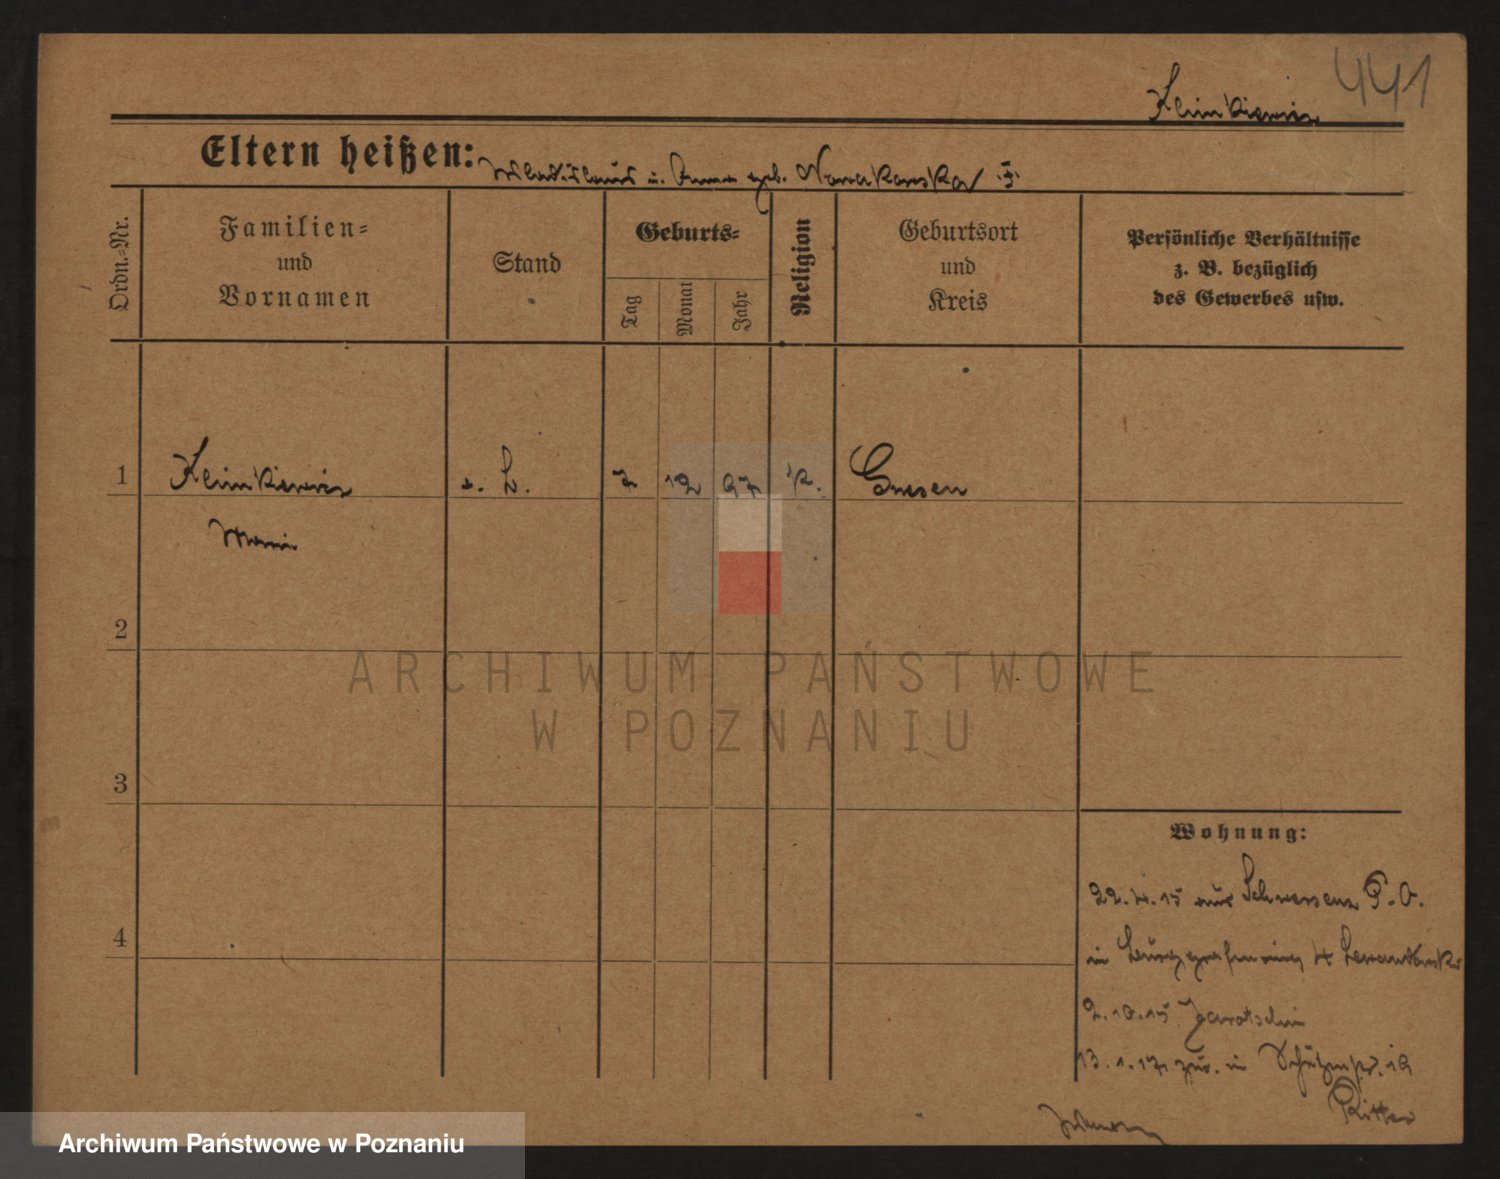 441
Klimkiewicz
Eltern heißen: Wladislaus u. Anna geb. Nowakowska
Ordn.-Nr.
Familien=
und
Vornamen
Stand
Geburts=
Tag
Monat
Jahr
Religion
Geburtsort
und
Kreis
Persönliche Verhältnisse
z. B. bezüglich
des Gewerbes usw.
1 Klimkiewicz L. 7 12 97 k. Gnesen
Marie
2
ARCHIWUM PAŃSTWOWE
W POZNANIU
3
Wohnung:
22.4.15 aus Schwersenz P. O.
4
in 4 Lewandowski
2.10.15 Jarotschin
13.1.17 zur. in Schützenstr. 19
Ritter
Archiwum Państwowe w Poznaniu